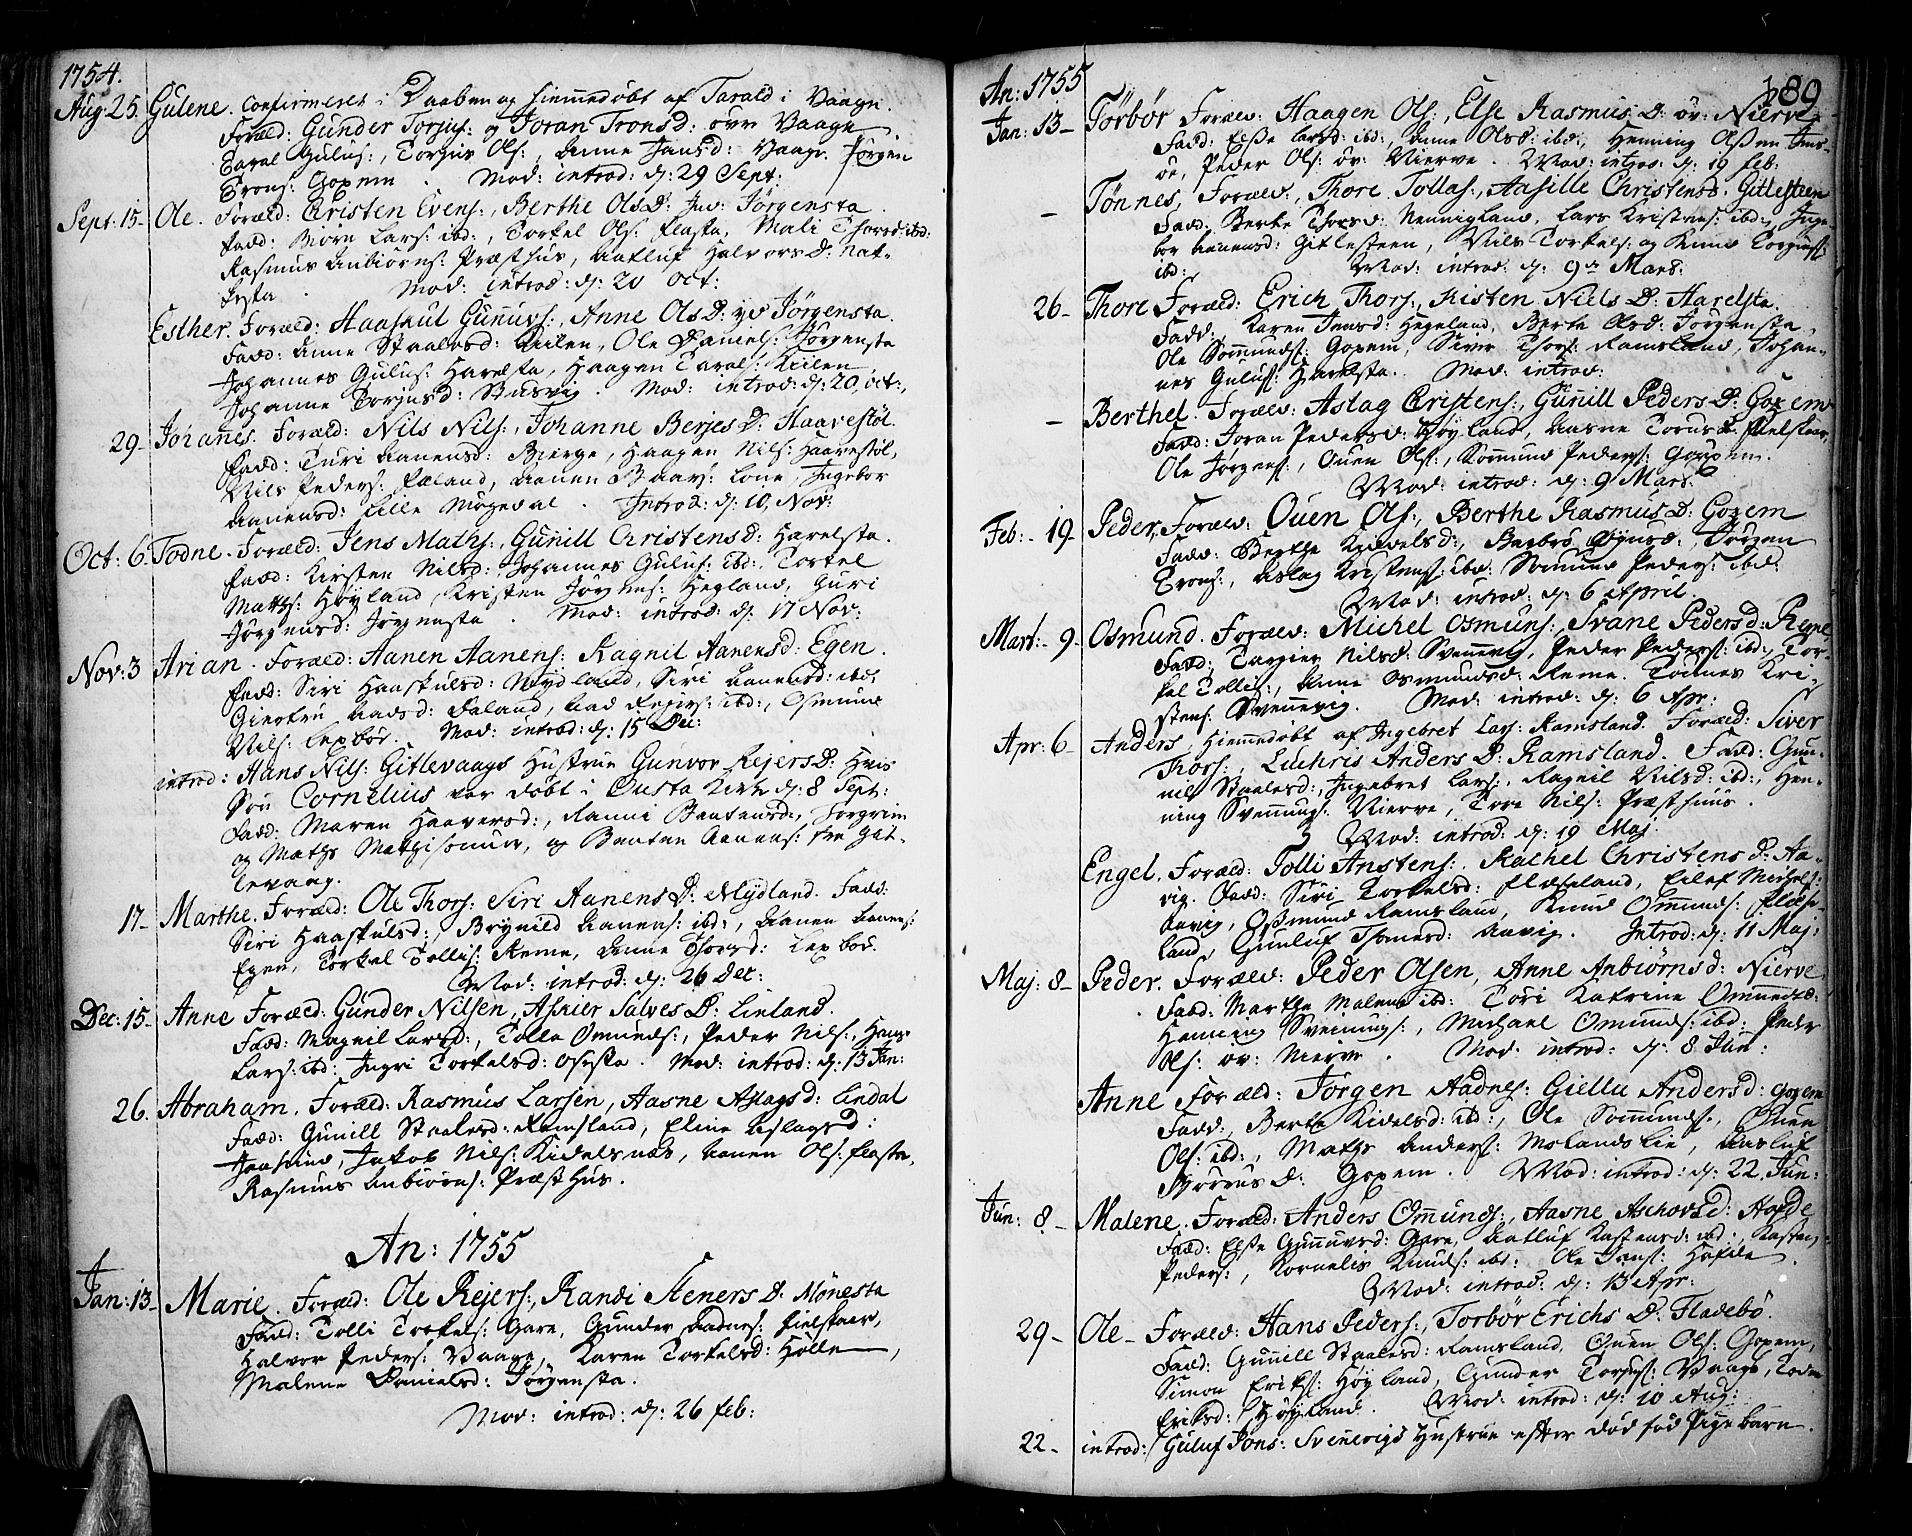 1754.
Aug 25. Gulene. Confirmeret i Daaben og hiemmedøbt af Tarald i Vaagn.
Foræld: Gunder Torjus: og Joran Tronsd: øvr Vaage
Taral Gulus:, Torjus Ols:, Anne Jansd: Vaage Jørgen
Trons: Goxem. Mod: introd: d: 29 Sept:
Sept: 15- Ole. Foræld: Cristen Evens:, Berthe Ols D: Jørgensta.
Fadd: Biørn Lars: ibd:, Torkel Ols: Flasta, Mali Thorsd: ibd:
Rasmus Anbiørns: Præsthus, Aatluf Halvors D: Nat-
festa. Mod: introd: d: 20 Oct:
Esther. Foræld: Haaskul Gunnuvs:, Anne Ols D: yd Jørgensta.
Fadd: Anne Staalesd: Kiilen, Ole Daniels: Jørgensta
Johannes Gulus: Harelsta, Haagen Tarals: Kiilen,
Johanne Torjusd: Stusvig. Mod: introd: d: 20, oct:,
29- Johanes. Foræld: Nils Nils:, Johanne Berjes D: Haavestøl.
Fadd: Turi Aanensd: Bierge, Haagen Nils: Haavestøl,
Nils Peders: Føland, Aanen Baars: Lone, Ingebor
Aanensd: Lille Møgedal. Introd: d: 10, Nov:
Oct: 6. Todne. Foræld: Jens Maths:, Gunill Christensd: Harelsta.
Fadd: Kirsten Nilsd:, Johannes Gulus: ibd:, Torkel
Maths: Høyland, Kristen Jørgens: Hegland, Guri
Jørgensd: Jørgensta. Mod: introd: d: 17 Nov:
Nov: 3 Arian. Foræld: Aanen Aanens: Ragnil Aanensd: Egen.
Fadd: Siri Haaskulsd: Nydland, Siri Aanensd: ibd:
Giertru Aadsd: Faland, Aad Rejers: ibd:, Osmund
Nils: Lexbør. Mod: introd: d: 15 Dec:
introd: Hans Nils: Gitlevaags Hustrue Gunvor Rejers D: Hvis
Søn Cornelius var døbt i Ousta Kirke d: 8 Sept:
Fadd: Maren Haaversd:, Ranni Bentensd:, Torgrim
og Maths, og Benten Aanens: fra Git-
levaag.
17- Marthe. Foræld: Ole Thors: Siri Aanens D: Nydland. Fadd:
Siri Haaskulsd:, Brynild Aanens: ibd:, Aanen Aanens:
Egen, Torkel Tollis: Reme, Anne Thorsd: Lexbør.
Mod: introd: d: 26 Dec:
Dec: 15- Anne Foræld: Gunder Nilsen, Assier Salves D: Linland.
Fadd: Magnil Larsd:, Tolle Omunds:, Peder Nils:, Hans
Lars: ibd: Ingri Torkelsd: Osesta. Mod: introd: d: 13 Jan:
26. Abraham. Foræld: Rasmus Larsen, Aasne Aslagsd: Lindal
Fadd: Gunill Staalesd: Ramsland, Eline Aslagsd:
Jaasund, Jakob Nils: Kidelsnæs, Aanen Ols: Flasta,
Rasmus Anbiørns: Præsthus.
An: 1755
Jan: 13- Marie. Foræld: Ole Rejers:, Randi Steners D: Mønesta
Fadd: Tolli Torkels: Gare, Gunder Aadnes: Fielstaer,
Halvor Peders: Vaage, Karen Torkelsd: Hølle,
Malene Danielsd: Jørgensta.
Mod: introd: d: 26 feb:
An: 1755
189
Jan: 13- Torbør Foræld: Haagen Ols:, Else Rasmus D: øv: Nierve.
Fadd: Elsse Larsd: ibd: Anne Olsd: ibd:, Henning Olssen Ims-
øe, Peder Ols: øv: Nierve. Mod: introd: d: 19 feb:
- Tønnes, Foræld: Thore Tollas:, Aasille Christensd: Gitlesteen
Fadd: Berte Thorsd: Nennigland, Lars Kristens: ibd:, Inge-
bor Aanensd: Gitlesteen, Nils Torkels: og Knud Torgius:
ibd: Mod: introd: d: 9de Mars:
26- Thore Foræld: Erich Thors:, Kisten Niels D: Harelsta.
Fadd:, Karen Jensd: Hegeland, Berte Olsd: Jørgensta,
Ole Sommunds: Goxem, Siver Thors: Ramsland, Johan-
nes Gulus: Harelsta. Mod: introd:
- Berthel. Foræld: Aslag Cristens:, Gunill Peders D: Goxem
Fadd: Joran Pedersd: Høyland, Aasne Torusd: Fielstaer,
Ole Jørgens:, Ouen Ols:, Sommund Peders: Goxem.
Mod: introd: d: 9 Mars:
Feb: 19- Peder, Foræld: Ouen Ols:, Berthe Rasmus D: Goxem
Fadd: Berthe Kidelsd:, Barbro, Jørgen
Trons:, Aslag Kristens: ibd: Sommund Peders: ibd:
Mod: introd: d: 6 April.
Mart: 9- Osmund. Foræld: Michel Osmuns:, Svane Pedersd: Reme,
Fadd: Targier Nilsd: Svennevig, Peder Peders: ibd:, Tor-
kel Tollis:, Anne Osmundsd: Reme. Tønnes Kri-
stens: Svennevig. Mod: introd: d: 6 Apr:
Apr: 6- Anders, Hiemmedøbt af Ingebret Lars: Ramsland. Foræld: Siver
Thors:, Luchris Anders D: Ramsland. Fadd: Gun-
nil Staalesd:, Ingebret Lars:, Ragnil Nilsd: ibd:, Hen-
ning Svennings: Nierve, Tore Nils: Præsthuus.
Mod: introd: d: 19 Maj:
Engel. Foræld: Tolli Anstens:, Rachel Christens D: Aa-
vig. Fadd: Siri Torkelsd: Flæseland, Eilef Michels:
Aavig, Osmund Ramsland, Knud Ommunds: Flæse-
land, Gunluf Thomesd: Aavig. Introd: d: 11 Maj:
Maj: 8- Peder. Foræld: Peder Olsen, Anne Anbiørnsd: Nierve
Fadd: Marthe Malene ibd: Tori Katrine Ommundsd:
Henning Svenings:, Michael Omunds: ibd: Peder
Ols: øv: Nierve. Mod: introd: d: 8 Jun:
Anne Foræld: Jørgen Aadnes: Giellu Andersd: Goxem
Fadd:, Berte Kidelsd: ibd:, Ole Sommunds:, Ouen
Ols: ibd:, Maths Anders: Molandslie, Aasluf
D: Goxem. Mod: introd: d: 22. Jun:
Jun: 8- Malene. Foræld: Anders Omunds:, Aasne Aschovsd: Hofde
Fadd: Elsse Gunnuvsd: Gare, Aatluf Kastensd: ibd:, Kasten
Peders:, Kornelis Knuds: ibd: Ole Jans: Hofde.
Mod: introd: d: 13 Apr:
29- Ole- Foræld: Hans Peders:, Torbør Erichs D: Fladebø.
Fadd: Gunnill Staalesd: Ramsland, Ouen Ols: Goxem,
Simon Eriks: Høyland, Gunder Torjus: Vaage, Todne
Eriksd: Høyland. Mod: introd: d: 10 Aug:
22- introd: Guluf Jons: Svenevigs Hustrue efter død fød Pigebarn.